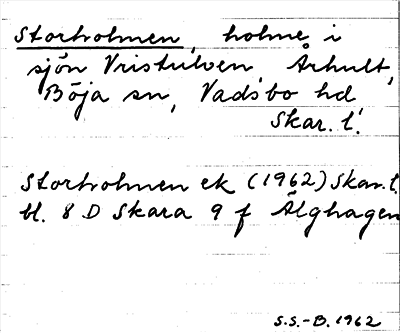 Storholmen, holme i
sjön Vristulven, Århult,
Böja sn, Vadsbo hd
Skar. l.
Storholmen ek (1962) Skar. l.
bl. 8 D Skara 9 f Älghagen
S.S.-B. 1962